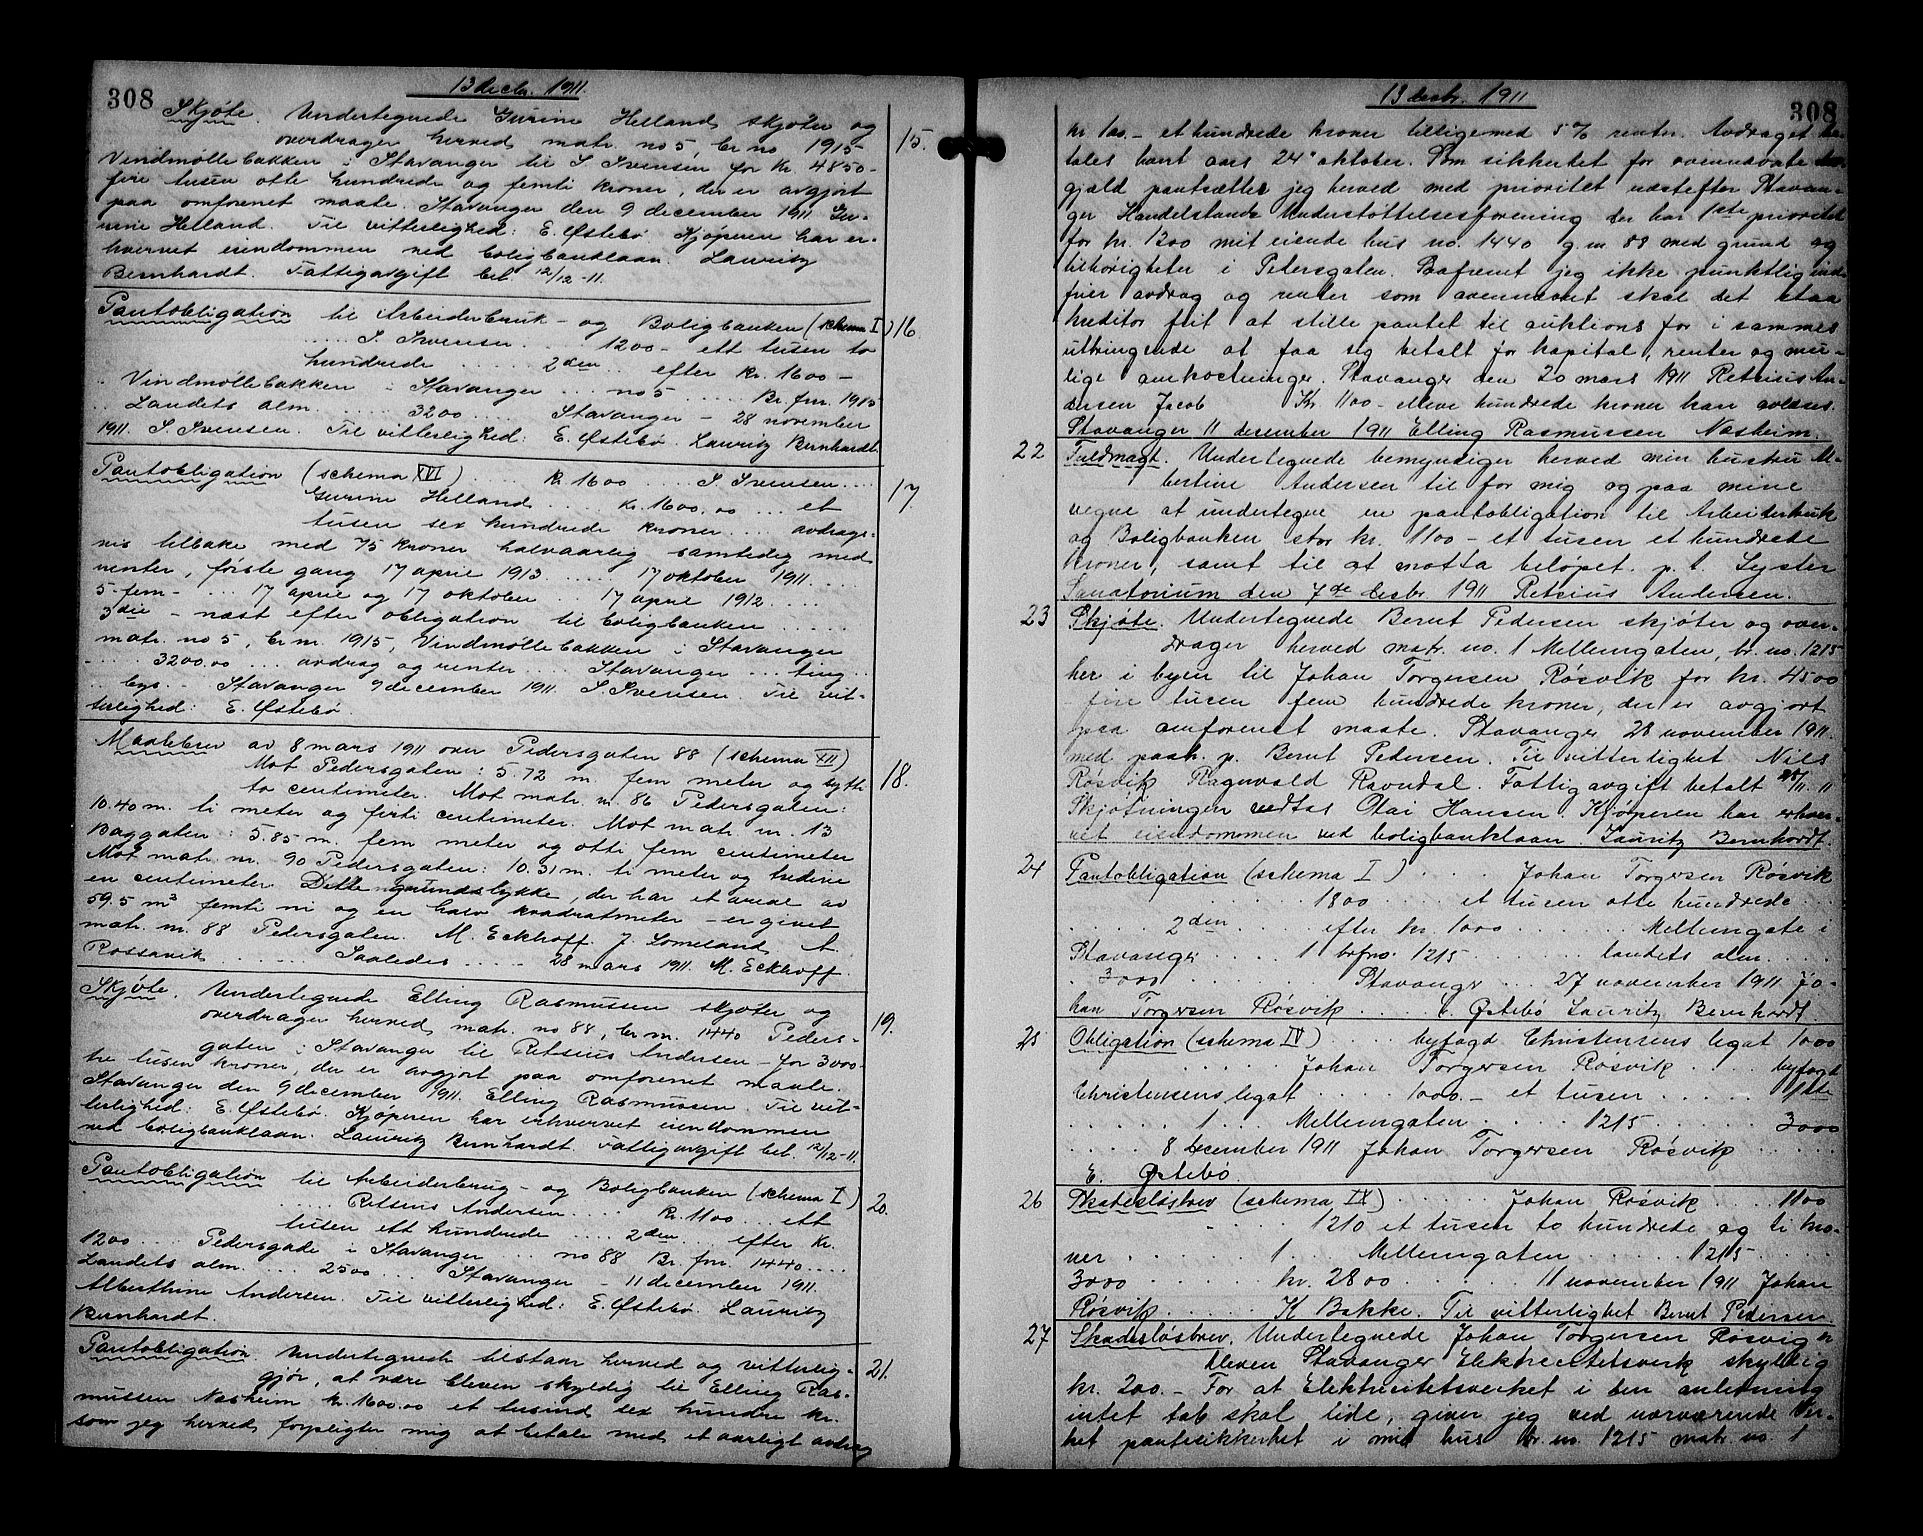 308
13 decbr. 1911.
Skjøte. Undertegnede Gurine Helland skjøter og
overdrager herved matr. no 5 br no 1915
Vindmøllebakken i Stavanger til S. Svensen for kr 4850-
fire tusen otte hundrede og femti kroner, der er avgjort
paa omforenet maate. Stavanger den 9 december 1911. Gu-
rine Helland. Til vitterlighed: E. Østebø. Kjøperen har er-
hvervet eiendommen ved boligbanklaan. Lauritz
Bernhardt. Fattigavgift bet. 12/12-11.
15.
Pantobligation til Arbeiderbruk- og Boligbanken (schema I)
..... S. Svensen ... 1200- ett tusen to
hundrede ..... 2den ... efter kr. 1600-
.. Vindmøllebakken i Stavanger ... no 5 ..... Br. fm. 1915
.. Landets alm. ..... 3200 ..... Stavanger - 28 november
1911. S. Svensen. Til vitterlighed: E. Østebø. Lauritz Bernhardt
16
Pantobligation (schema XVI) ..... kr. 1600 ..... S. Svensen ....
Gurine Helland ..... kr. 1600.00 ... et
tusen sex hundrede kroner ..... avdrags-
vis tilbake med 75 kroner halvaarlig samtidig med
renter, første gang 17 april 1913 ..... 17 oktober 1911 ...
5-fem- ... 17 april og 17 oktober .. 17 april 1912 .....
3die - næst efter obligation til boligbanken .....
matr. no 5, br. nr. 1915, Vindmøllebakken i Stavanger
..... 3200.00 ... avdrag og renter .... Stavanger ... ting..
.. bys. - Stavanger 9 december 1911. S. Svensen. Til vit-
terlighed: E. Østebø.
17.
Maalebrev av 8 mars 1911 over Pedersgaten 88 (schema XII)
Mot Pedersgaten: 5.72 m. fem meter og sytti
to centimeter. Mot matr. nr. 86 Pedersgaten:
10.40 m. ti meter og firti centimeter. Mot matr. nr. 13
Baggaten: 5.85 m. fem meter og otti fem centimeter
Mot matr. nr. 90 Pedersgaten: 10.31 m. ti meter og tredive
en centimeter. Dette grundstykke, der har et areal av
59.5 m² femti ni og en halv kvadratmeter - er givet
matr. nr. 88 Pedersgaten. M. Eckhoff. J. Sömeland. A.
Rossavik ..... Saaledes ..... 28 mars 1911. M. Eckhoff.
18.
Skjøte. Undertegnede Elling Rasmussen skjøter og
overdrager herved matr. no 88, br. nr. 1440 Peders-
gaten i Stavanger til Retsius Andersen - for 3000-
tre tusen kroner, der er avgjort paa omforenet maate.
Stavanger den 9 december 1911. Elling Rasmussen. Til vit-
terlighed: E. Østebø. Kjøperen har erhvervet eiendommen
ved boligbanklaan. Lauritz Bernhardt. Fattigavgift bet. 12/12-11.
19.
Pantobligation til Arbeiderbrug- og Boligbanken (schema I)
..... Retsius Andersen .... kr. 1100 ... ett
tusen ett hundrede ..... 2den ... efter kr.
1200 .... Pedersgade i Stavanger ... no 88 Br. fm. 1440 .....
Landets alm. .... 2500 .... Stavanger - 11 december 1911.
Alberthine Andersen. Til vitterlighed: E. Østebø. Lauritz
Bernhardt.
20.
Pantobligation. Undertegnede tilstaar herved og vitterlig-
gjør, at være bleven skyldig til Elling Ras-
mussen Næsheim kr. 1600.00 et tusind sex hundre kr.
som jeg herved forpligter mig at betale med et aarligt avdrag
21.
13 decbr. 1911
308
kr 100.- et hundrede kroner tilligemed 5 % renter. Avdraget be-
tales hvert aars 24' oktober. Som sikkerhet for ovennævnte
gjæld pantsætter jeg herved med prioritet næstefter Stavan-
ger Handelstands Understøttelsesforening der har 1ste prioritet
for kr. 1200 mit eiende hus no. 1440 g. nr 88 med grund og
tilhørigheter i Petersgaten. Saafremt jeg ikke punktlig ind-
frier avdrag og renter som ovennævnt skal det staa
kreditor frit at stille pantet til auktions for i sammes
utbringende at faa sig betalt for kapital, renter og mu-
lige omkostninger. Stavanger den 20 mars 1911 Retsius An-
dersen Jacob Kr 1100- elleve hundrede kroner kan avløses.
Stavanger 11 desember 1911 Elling Rasmussen Næsheim.
22 Fuldmagt. Undertegnede bemyndiger herved min hustru Al-
bertine Andersen til for mig og paa mine
vegne at undertegne en pantobligation til Arbeiderbruk
og Boligbanken stor kr. 1100 - et tusen et hundrede
kroner, samt til at motta beløpet. p. t. Lyster
Sanatorium den 7de decbr. 1911 Retsius Andersen.
23 Skjøte. Undertegnede Bernt Pedersen skjøter og over-
drager herved matr. no. 1 Mellemgaten, br. no. 1215
her i byen til Johan Torgersen Røsvik for kr. 4500
- fire tusen fem hundrede kroner, der er avgjort
paa omforenet maate. Stavanger 28 november 1911.
med paah. p. Bernt Pedersen. Til vitterlighet Nils
Røsvik Ragnvald Ravndal. Fattigavgift betalt 28/11. 11
Skjøtningen vedtas Olai Hansen. Kjøperen har erhver-
vet eiendommen ved boligbanklaan. Lauritz Bernhardt.
24 Pantobligation (schema I) .... Johan Torgersen Røsvik
..... 1800 ..... et tusen otte hundrede ...
..... 2den ..... efter kr. 1000 ..... Mellemgate i
Stavanger .... 1 brfno. 1215 ..... landets alm. ....
. 3000 ..... Stavanger ... 27 november 1911 Jo-
han Torgersen Røsvik ..... E. Østebø Lauritz Bernhardt
25 Obligation (schema IV) .... byfogd Christensens legat 1000
..... Johan Torgersen Røsvik .... byfogd
Christensens legat ..... 1000.- et tusen ..... 1ste
..... 1 ... Mellemgaten ..... 1215 ..... 3000
.... 8 december 1911 Johan Torgersen Røsvik .....
E. Østebø.
26 Skadesløsbrev (schema IX) ..... Johan Røsvik .... 1100
..... 1210 et tusen to hundrede og ti kro-
ner ..... 1 ... Mellemgaten ..... 1215 .....
3000 ..... kr. 2800 ..... 11 november 1911 Johan
Røsvik ..... K Bakke. Til vitterlighet Bernt Pedersen
27 Skadesløsbrev. Undertegnede Johan Torgersen Røsvig er
bleven Stavanger Elektricitetsverk skyldig
kr. 200.- For at Elektricitetsverket i den anledning
intet tab skal lide, giver jeg ved nærværende Ver-
ket pantesikkerhet i mit hus br. no. 1215 matr. no. 1